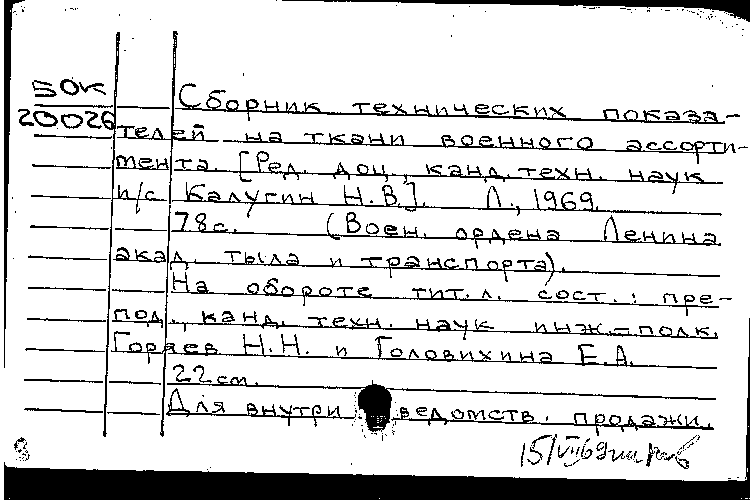 БОК
20026
Сборник технических показа-
телей на ткани военного ассорти-
мента. [Ред. доц., канд. техн. наук
п/с Калугин Н.В.]. Л., 1969.
78с. (Воен. ордена Ленина
акад. тыла и транспорта).
На обороте тит. л. сост.: пре-
под., канд. техн. наук инж.-полк.
Горяев Н.Н. и Головихина Е.А.
22см.
Для внутриведомств. продажи.
15/VII69